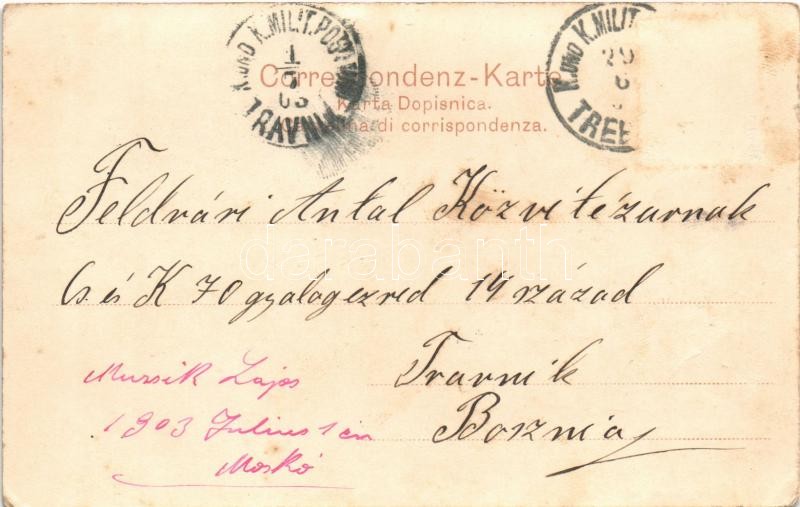 K. UND K. MILIT. POST
1
6
03
TRAVNIK
K. UND K. MILIT.
29
6
TREB
Correspondenz-Karte
Karta Dopisnica.
di corrispondenza.
Feldvári Antal Közvitézurnak
Cs. és K 70 gyalogezred 19 század
Travnik
Bosznia
Murvik Lajos
1903 Julius 1 én
Moskó
darabanth